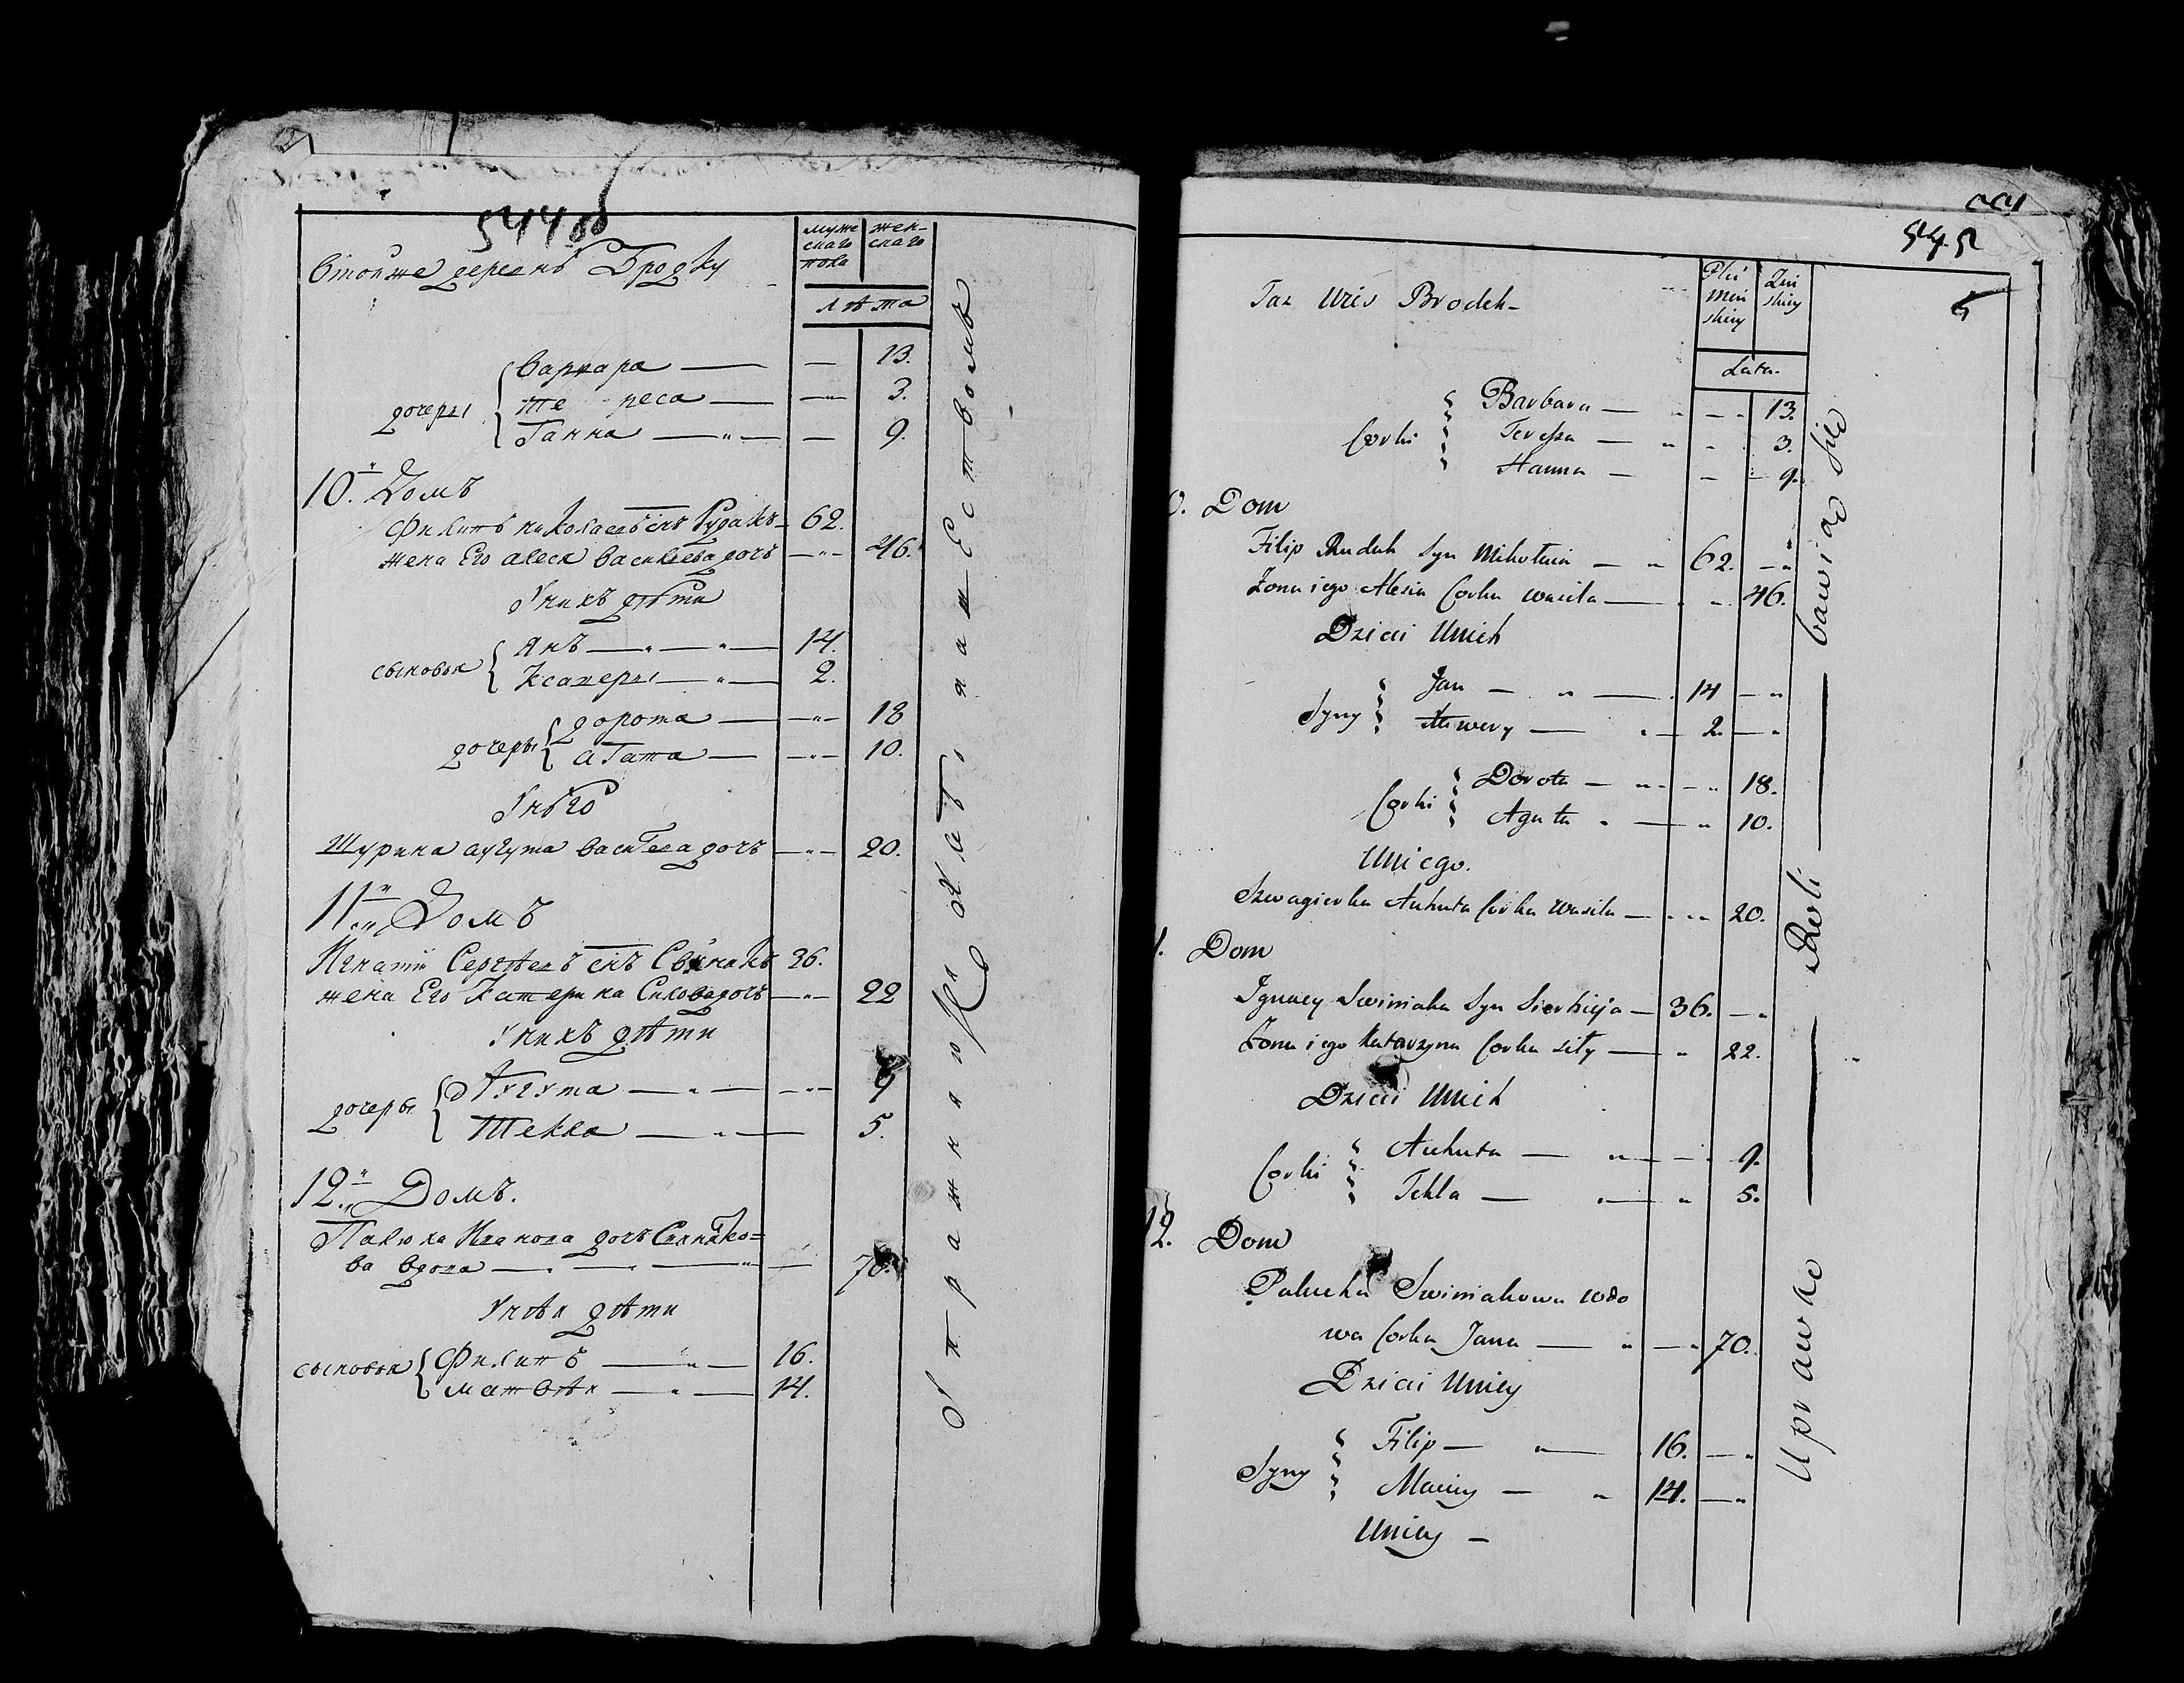 544 об
Втойже деревнѣ Бродку
муже
скаго
пола
жен-
скаго
лѣта
дочеры
Варвара — — 13.
Те реса — — 3.
Ганна — — 9.
10. Домъ
Филипъ николаевъ снъ Рудакъ 62.
жена Его алеся василева дочъ — 46.
Унихъ дѣти
сыновья
Янъ — 14.
Ксаверы — 2.
дочеры
дорота — 18
агата — 10.
Унѣго
Шурина аугута василева дочъ — 20.
11. Домъ
Игнатіи Сергѣевъ снъ Свинякъ 36.
жена Его Катерина Силова дочъ — 22
Унихъ дѣти
дочеры
Аугута — 9
Текла — 5.
12. Домъ.
Палюха Иванова дочъ Свиняко=
ва вдова — 70.
Унѣя дѣти
сыновья
Филипъ — 16.
матвѣй — 14.
УпражняюЖся хлѣбопашЕством
545
5
Taz Wies Brodek
Płci
Męś
skiey
Żeń
skiey
Lata.
Corki
Barbara — 13.
Teressa — 3.
Hanna — 9.
0. Dom
Filip Rudak Syn Mikołaia — 62.
Żona iego Alesia Corka Wasila — 46.
Dzieci Unich
Syny
Jan — 14
Xawery — 2.
Corki
Dorota — 18.
Agata — 10.
Uniego.
Szwagierka Auhuta Corka Wasila — 20.
1. Dom
Ignacy Swiniaka Syn Sierhieja — 36.
Żona iego Katarzyna Corka siły — 22.
Dzieci Unich
Corki
Auhuta — 9.
Tekla — 5.
12. Dom
Palucha Swiniakowa wdo
wa Corka Jana — 70.
Dzieci Uniey
Syny
Filip — 16.
Maciey — 14.
Uniey —
Uprawą — Roli — bawią się